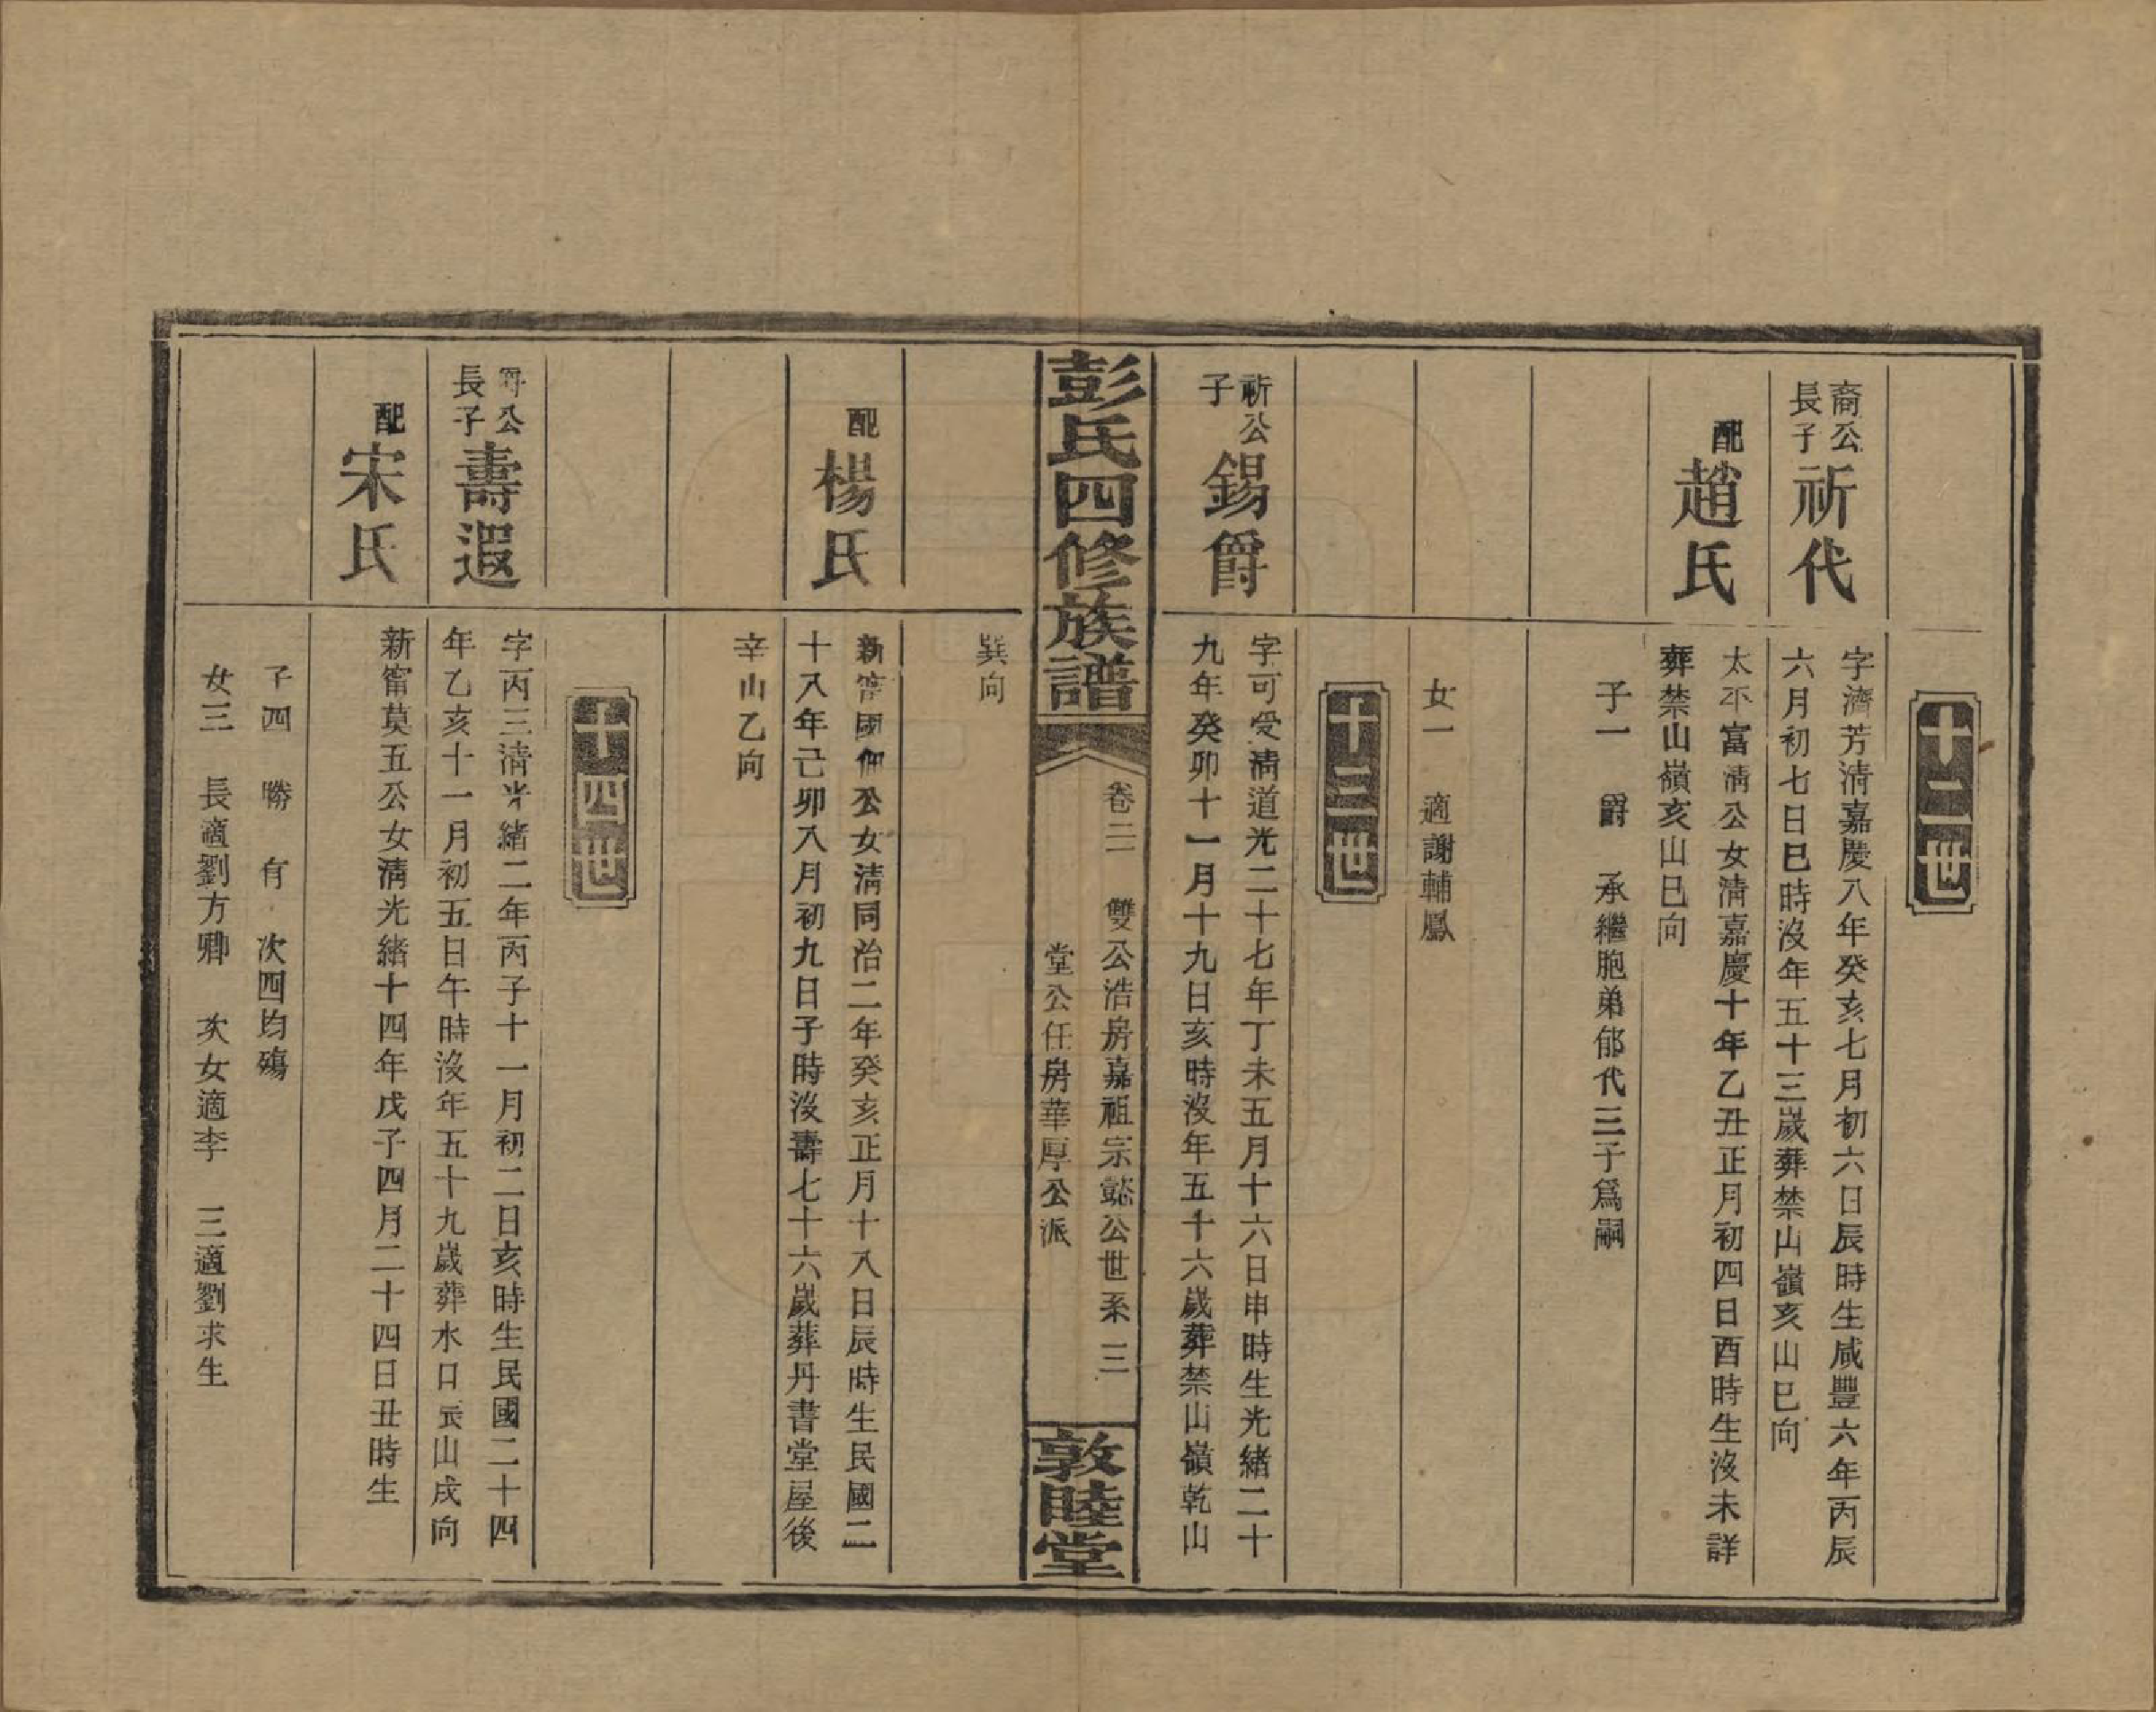 十二世
裔公
長子
祈代
字濟芳清嘉慶八年癸亥七月初六日辰時生咸豐六年丙辰
六月初七日巳時沒年五十三歲葬禁山嶺亥山巳向
配趙氏
太平富清公女清嘉慶十年乙丑正月初四日酉時生沒未詳
葬禁山嶺亥山巳向
子一　爵　承繼胞弟郁代三子爲嗣
女一　適謝輔鳳
十三世
祈公
子
錫爵
字可受清道光二十七年丁未五月十六日申時生光緒二十
九年癸卯十一月十九日亥時沒年五十六歲葬禁山嶺乾山
彭氏四修族譜
卷二　雙公浩房嘉祖宗懿公世系　三
堂公任房華厚公派
敦睦堂
巽向
配楊氏
新甯國佃公女清同治二年癸亥正月十八日辰時生民國二
十八年己卯八月初九日子時沒壽七十六歲葬丹書堂屋後
辛山乙向
十四世
爵公
長子
壽遐
字丙三清光緒二年丙子十一月初二日亥時生民國二十四
年乙亥十一月初五日午時沒年五十九歲葬水口辰山戌向
配宋氏
新甯莫五公女清光緒十四年戊子四月二十四日丑時生
子四　勝　有　次四均殤
女三　長適劉方卿　次女適李　三適劉求生